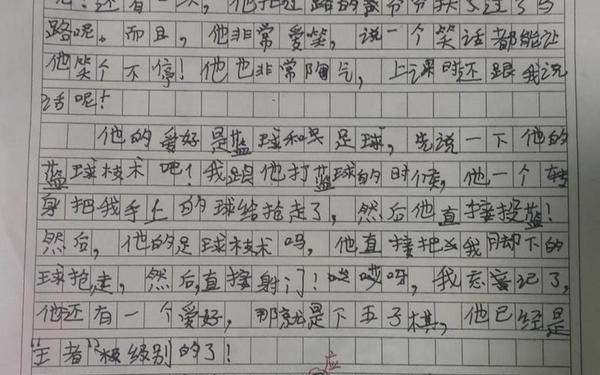 还有一次，他把过路的爷爷扶过了马
路呢。而且，他非常爱笑，说一个笑话都能让
他笑个不停！他也非常陶气，上课时还跟我说
话呢！
他的爱好是蓝球和足球，先说一下他的
蓝球技术吧！我跟他打蓝球的时候，他一个转
身把我手上的球给抢走了，然后他直接投蓝！
然后，他的足球技术吗，他直接把我脚下的
球抢走，然后，直接射门！哎哎呀，我忘记了，
他还有一个爱好，那就是下五子棋，他已经是
“王者”级别的了！
应